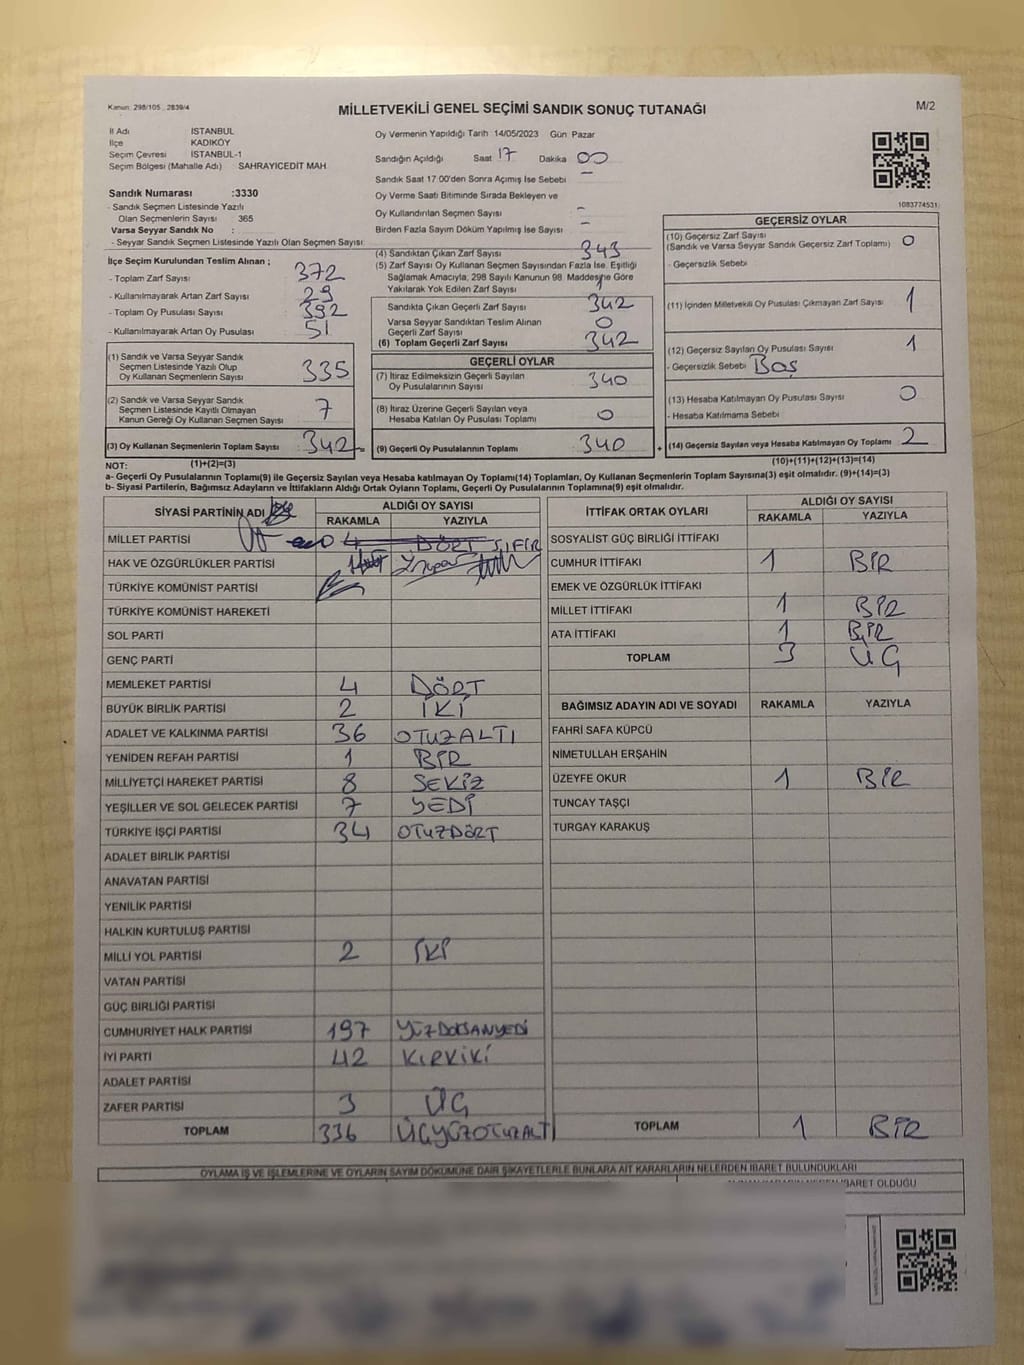 Kanun: 298/105 , 2839/4
MİLLETVEKİLİ GENEL SEÇİMİ SANDIK SONUÇ TUTANAĞI
M/2
İl Adı İSTANBUL
İlçe KADIKÖY
Seçim Çevresi İSTANBUL-1
Seçim Bölgesi (Mahalle Adı) SAHRAYICEDİT MAH.
Sandık Numarası :3330
- Sandık Seçmen Listesinde Yazılı
Olan Seçmenlerin Sayısı : 365
Varsa Seyyar Sandık No :
- Seyyar Sandık Seçmen Listesinde Yazılı Olan Seçmen Sayısı
Oy Vermenin Yapıldığı Tarih 14/05/2023 Gün Pazar
Sandığın Açıldığı Saat 17 Dakika 00
Sandık Saat 17:00'den Sonra Açımış İse Sebebi –
Oy Verme Saati Bitiminde Sırada Bekleyen ve
Oy Kullandırılan Seçmen Sayısı –
Birden Fazla Sayım Döküm Yapılmış İse Sayısı –
1083774531
İlçe Seçim Kurulundan Teslim Alınan ;
- Toplam Zarf Sayısı 372
- Kullanılmayarak Artan Zarf Sayısı 29
- Toplam Oy Pusulası Sayısı 392
- Kullanılmayarak Artan Oy Pusulası 51
(1) Sandık ve Varsa Seyyar Sandık
Seçmen Listesinde Yazılı Olup
Oy Kullanan Seçmenlerin Sayısı 335
(2) Sandık ve Varsa Seyyar Sandık
Seçmen Listesinde Kayıtlı Olmayan
Kanun Gereği Oy Kullanan Seçmen Sayısı 7
(3) Oy Kullanan Seçmenlerin Toplam Sayısı 342
(1)+(2)=(3)
(4) Sandıktan Çıkan Zarf Sayısı 343
(5) Zarf Sayısı Oy Kullanan Seçmen Sayısından Fazla İse, Eşitliği
Sağlamak Amacıyla, 298 Sayılı Kanunun 98. Maddesine Göre
Yakılarak Yok Edilen Zarf Sayısı 1
Sandıkta Çıkan Geçerli Zarf Sayısı 342
Varsa Seyyar Sandıktan Teslim Alınan
Geçerli Zarf Sayısı 0
(6) Toplam Geçerli Zarf Sayısı 342
GEÇERLİ OYLAR
(7) İtiraz Edilmeksizin Geçerli Sayılan
Oy Pusulalarının Sayısı 340
(8) İtiraz Üzerine Geçerli Sayılan veya
Hesaba Katılan Oy Pusulası Toplamı 0
(9) Geçerli Oy Pusulalarının Toplamı 340
GEÇERSİZ OYLAR
(10) Geçersiz Zarf Sayısı
(Sandık ve Varsa Seyyar Sandık Geçersiz Zarf Toplamı) 0
- Geçersizlik Sebebi
(11) İçinden Milletvekili Oy Pusulası Çıkmayan Zarf Sayısı 1
(12) Geçersiz Sayılan Oy Pusulası Sayısı 1
- Geçersizlik Sebebi Boş
(13) Hesaba Katılmayan Oy Pusulası Sayısı 0
- Hesaba Katılmama Sebebi
(14) Geçersiz Sayılan veya Hesaba Katılmayan Oy Toplamı 2
(10)+(11)+(12)+(13)=(14)
NOT:
a- Geçerli Oy Pusulalarının Toplamı(9) ile Geçersiz Sayılan veya Hesaba katılmayan Oy Toplamı(14) Toplamları, Oy Kullanan Seçmenlerin Toplam Sayısına(3) eşit olmalıdır. (9)+(14)=(3)
b- Siyasi Partilerin, Bağımsız Adayların ve İttifakların Aldığı Ortak Oyların Toplamı, Geçerli Oy Pusulalarının Toplamına(9) eşit olmalıdır.
SİYASİ PARTİNİN ADI ALDIĞI OY SAYISI
RAKAMLA YAZIYLA
MİLLET PARTİSİ 4 DÖRT SIFIR
HAK VE ÖZGÜRLÜKLER PARTİSİ
TÜRKİYE KOMÜNİST PARTİSİ
TÜRKİYE KOMÜNİST HAREKETİ
SOL PARTİ
GENÇ PARTİ
MEMLEKET PARTİSİ 4 DÖRT
BÜYÜK BİRLİK PARTİSİ 2 İKİ
ADALET VE KALKINMA PARTİSİ 36 OTUZALTI
YENİDEN REFAH PARTİSİ 1 BİR
MİLLİYETÇİ HAREKET PARTİSİ 8 SEKİZ
YEŞİLLER VE SOL GELECEK PARTİSİ 7 YEDİ
TÜRKİYE İŞÇİ PARTİSİ 34 OTUZDÖRT
ADALET BİRLİK PARTİSİ
ANAVATAN PARTİSİ
YENİLİK PARTİSİ
HALKIN KURTULUŞ PARTİSİ
MİLLİ YOL PARTİSİ 2 İKİ
VATAN PARTİSİ
GÜÇ BİRLİĞİ PARTİSİ
CUMHURİYET HALK PARTİSİ 197 YÜZDOKSANYEDİ
İYİ PARTİ 42 KIRKİKİ
ADALET PARTİSİ
ZAFER PARTİSİ 3 ÜÇ
TOPLAM 336 ÜÇYÜZOTUZALTI
İTTİFAK ORTAK OYLARI ALDIĞI OY SAYISI
RAKAMLA YAZIYLA
SOSYALİST GÜÇ BİRLİĞİ İTTİFAKI
CUMHUR İTTİFAKI 1 BİR
EMEK VE ÖZGÜRLÜK İTTİFAKI
MİLLET İTTİFAKI 1 BİR
ATA İTTİFAKI 1 BİR
TOPLAM 3 ÜÇ
BAĞIMSIZ ADAYIN ADI VE SOYADI RAKAMLA YAZIYLA
FAHRİ SAFA KÜPCÜ
NİMETULLAH ERŞAHİN
ÜZEYFE OKUR 1 BİR
TUNCAY TAŞÇI
TURGAY KARAKUŞ
TOPLAM 1 BİR
OYLAMA İŞ VE İŞLEMLERİNE VE OYLARIN SAYIM DÖKÜMÜNE DAİR ŞİKAYETLERLE BUNLARA AİT KARARLARIN NELERDEN İBARET BULUNDUKLARI
İBARET OLDUĞU